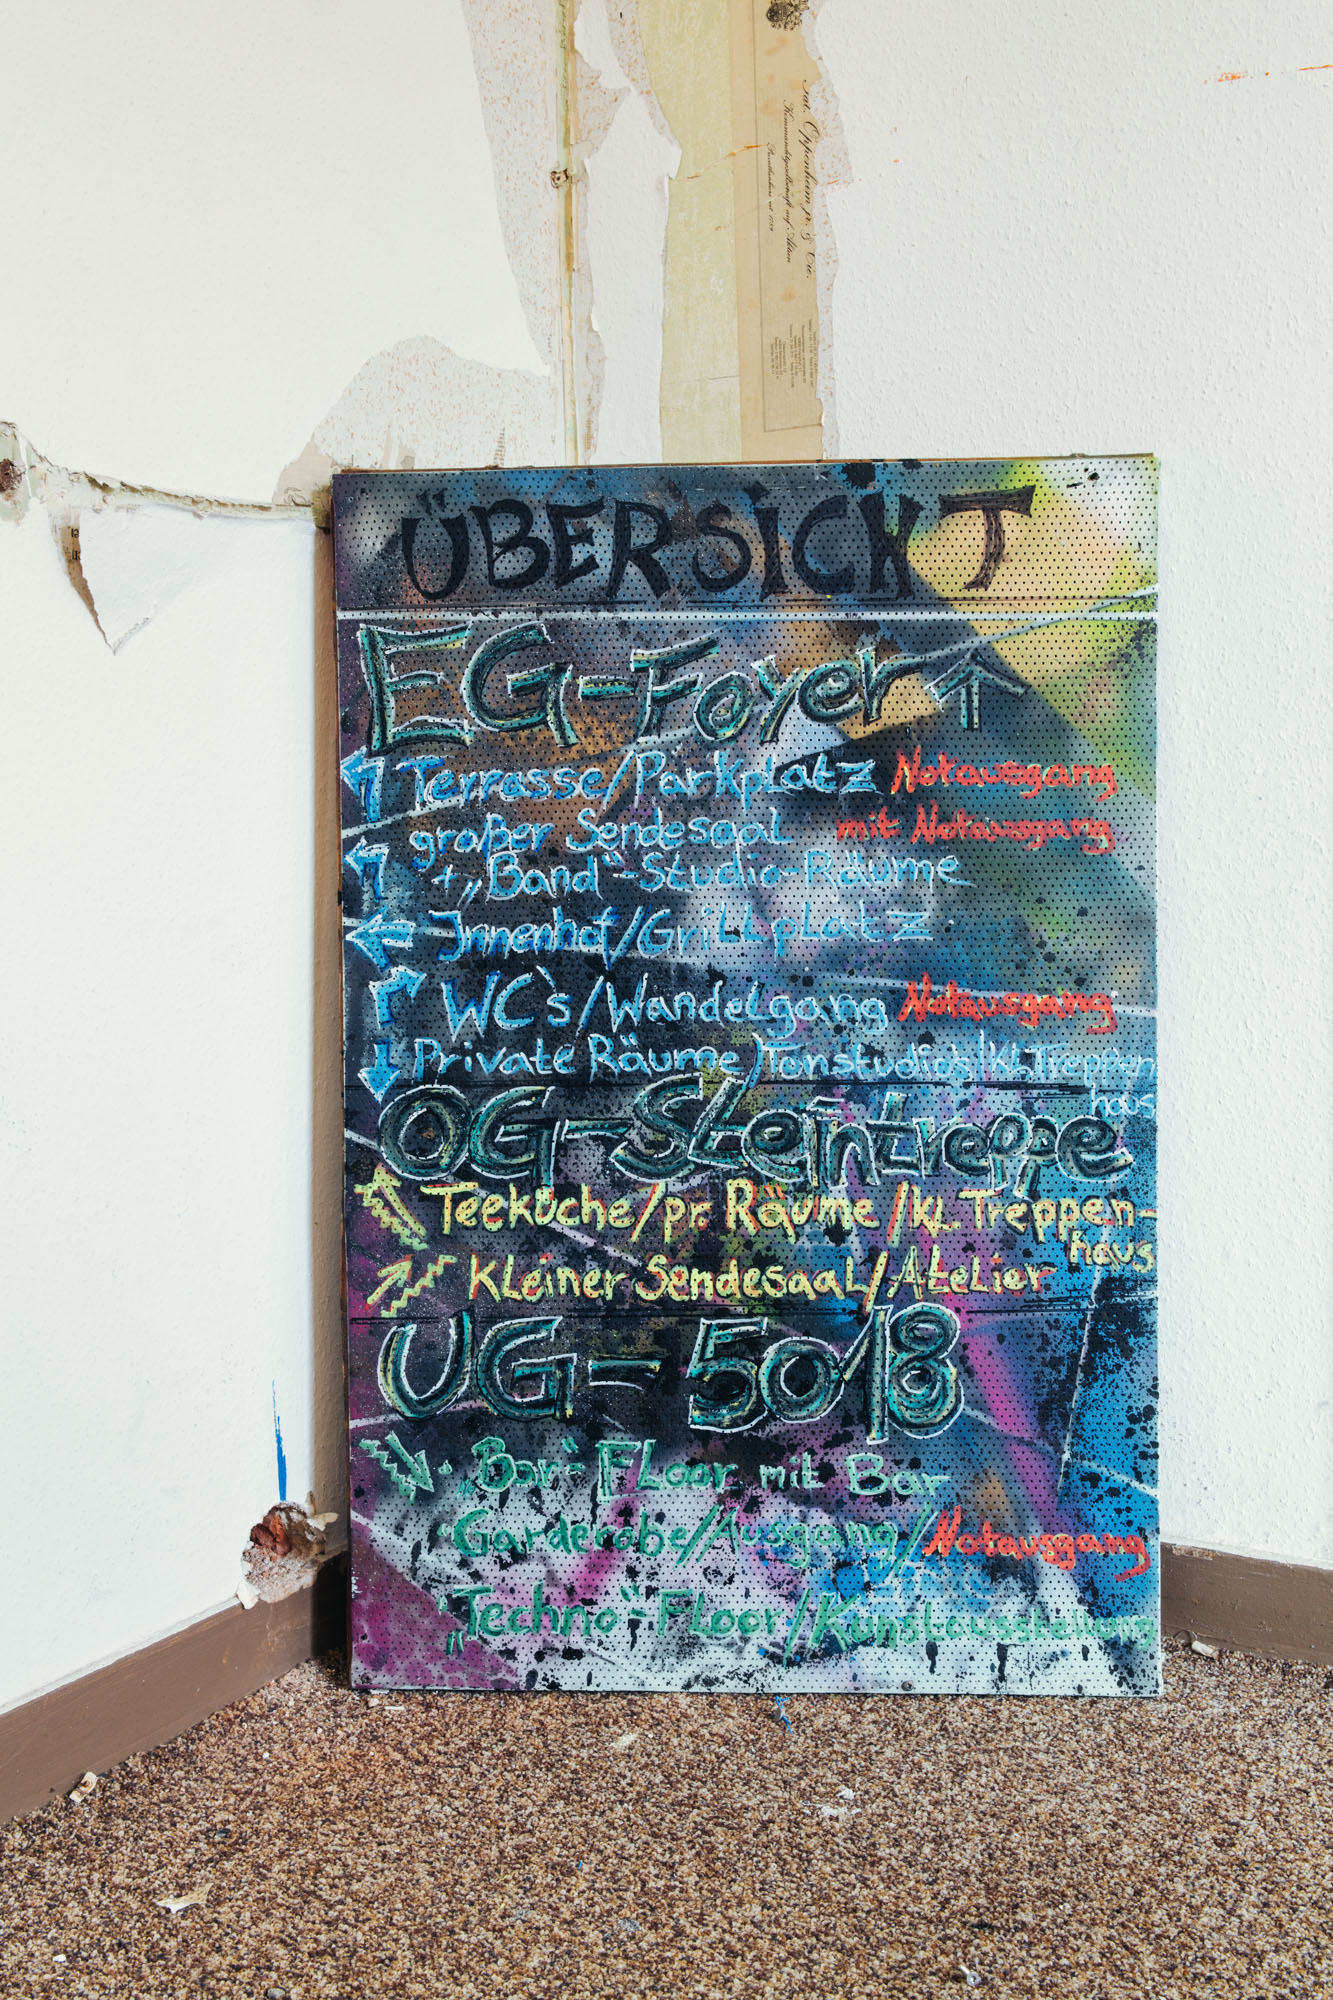 Sal. Oppenheim jr. & Cie.
Kommanditgesellschaft auf Aktien
Bankhaus seit 1789
ÜBERSiCHT
EG-Foyer ↑
Terrasse/Parkplatz Notausgang
großer Sendesaal mit Notausgang
+„Band"-Studio-Räume
Innenhof/Grillplatz
WC's/Wandelgang Notausgang
Private Räume/Tonstudios/kl.Treppen
haus
OG-Steintreppe
Teeküche/pr. Räume/kl. Treppen-
haus
Kleiner Sendesaal/Atelier
UG-5018
„Bar"-Floor mit Bar
Garderobe/Ausgang/Notausgang
„Techno"-Floor/Kunstausstellung